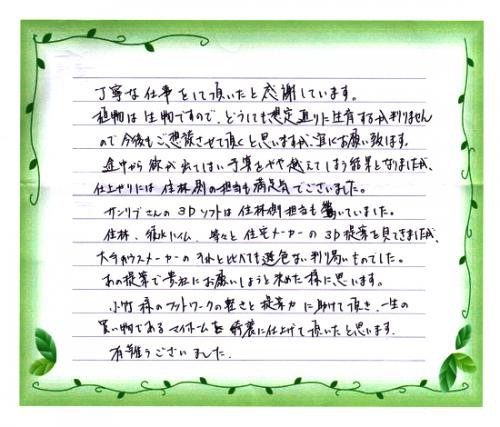 丁寧な仕事をして頂いたと感謝しています。
植物は生物ですので、どうしても想定通りに生育するか判りません
ので今後もご想談させて頂くと思いますが宜しくお願い致します。
途中から欲が出てしまい予算をやや越えてしまう結果となりましたが、
仕上がりには住林側の担当も満足気でございました。
サンリブさんの3Dソフトは住林側担当も驚いていました。
住林、積水ハイム、等々と住宅メーカーの3D提案を見てきましたが、
大手ハウスメーカーのそれと比べても遜色ない判り易いものでした。
あの提案で貴社にお願いしようと決めた様に思います。
小竹様のフットワークの軽さと提案力に助けて頂き、一生の
買い物であるマイホームを綺麗に仕上げて頂いたと思います。
有難うございました。